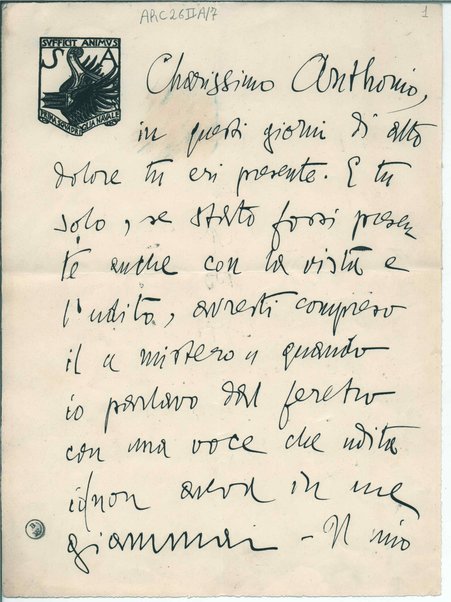 ARC 26 II A/7
1
SVFFICIT ANIMVS
S A
PRIMA SQVADRIGLIA NAVALE
Charissimo Anthonio,
in questi giorni di alto
dolore tu eri presente. E tu
solo, se stato fossi presen
te anche con la vista e
l'udita, avresti compreso
il « mistero » quando
io parlavo dal feretro
con una voce che udita
io non aveva in me
giammai – Il mio